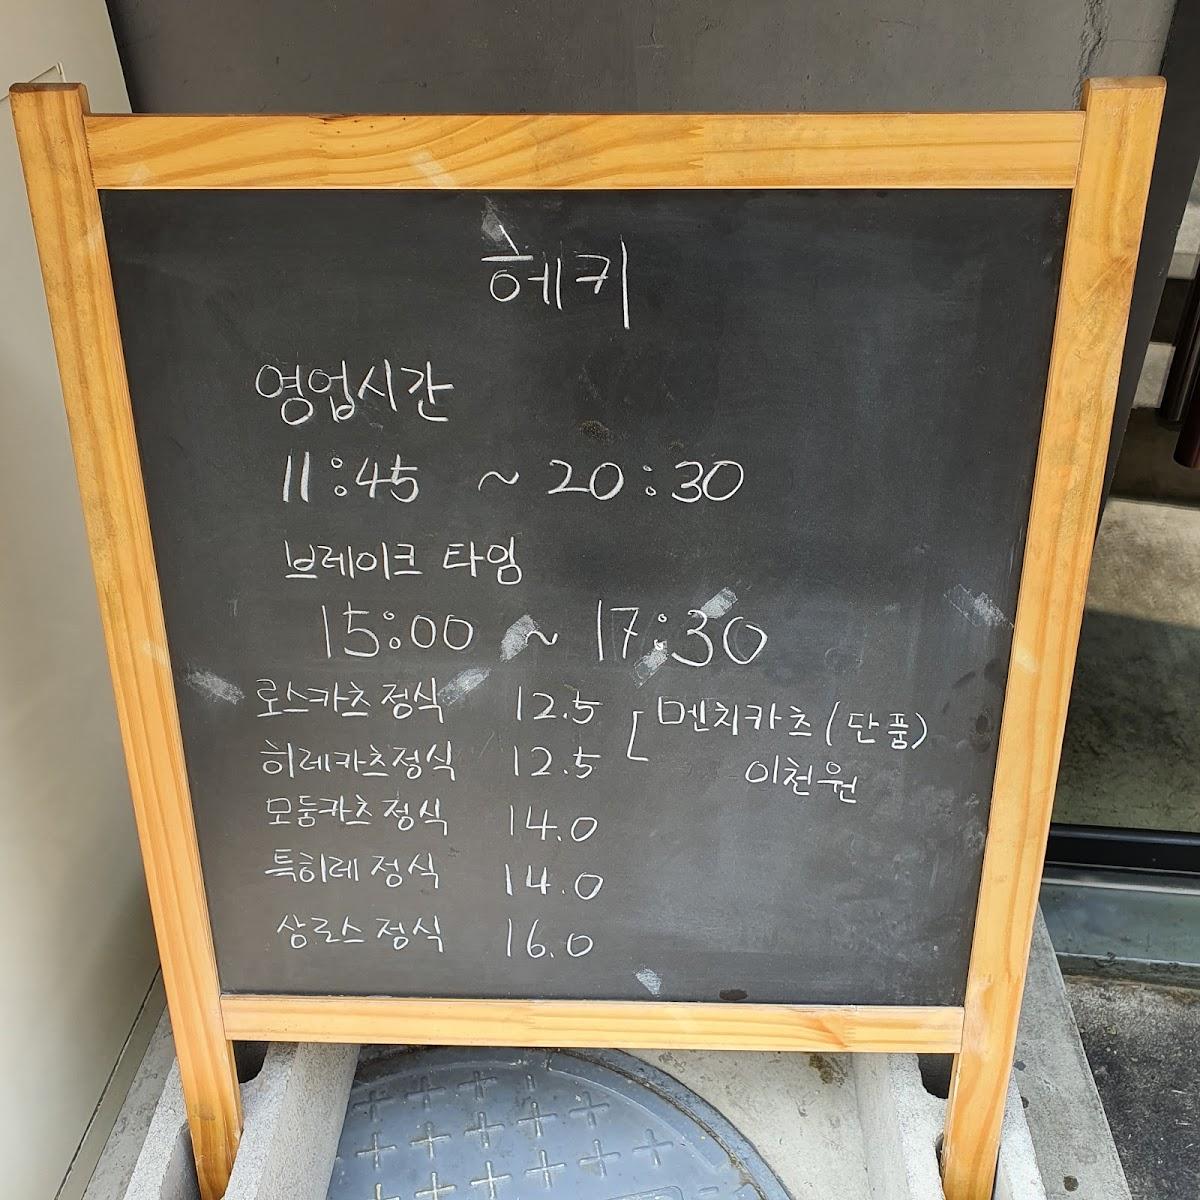 헤키
영업시간
11:45 ~ 20:30
브레이크 타임
15:00 ~ 17:30
로스카츠 정식 12.5 [ 멘치카츠 (단품)
히레카츠정식 12.5 이천원
모둠카츠 정식 14.0
특히레 정식 14.0
상로스 정식 16.0